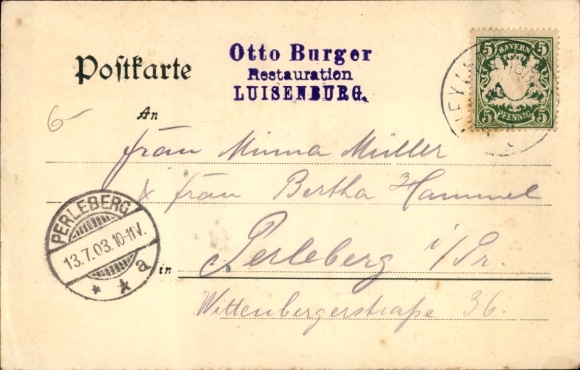 Postkarte
Otto Burger
Restauration
LUISENBURG.
5 BAYERN 5
5 PFENNIG 5
6-
An
Frau Minna Müller
& Frau Bertha Hammel
PERLEBERG
13.7.03.10-11V.
* * a
in Perleberg i/Pr.
Wittenbergerstraße 36.